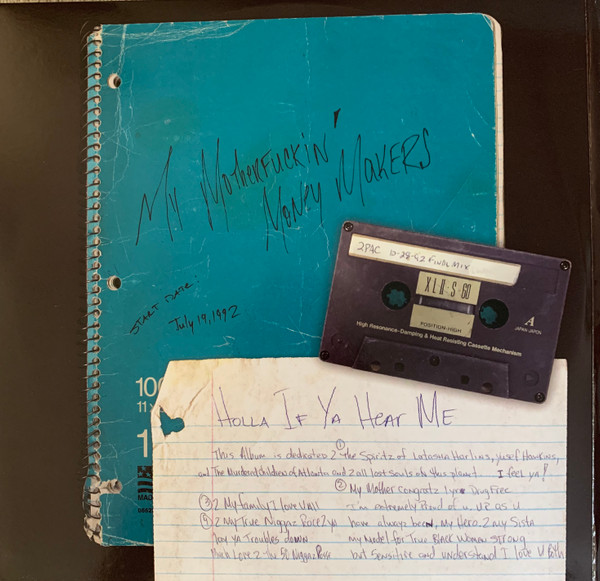 My Motherfuckin'
Money Makers
START DATE
July 19, 1992
2PAC 10-28-92 FINAL MIX
XLII-S 60
POSITION-HIGH
A
JAPAN JAPON
High Resonance-Damping & Heat Resisting Cassette Mechanism
100
11 ×
1
MAD
HOLLA IF YA HEAR ME
This Album is dedicated 2 ① the Spiritz of Latasha Harlins, Yusef Hawkins,
and The Murdered children of Atlanta and 2 all lost souls on this planet I feel ya!
② My Mother congratz 1 yr Drug Free
③ 2 My family I love U all I'm extremely proud of u. UR as U
④ 2 My True Niggaz Peace 2 ya have always been, My Hero. 2 my Sista
May ya Troubles down my model for True Black Women strong
Much Love 2 the 50 Niggaz Posse but sensitive and understand I love U Both